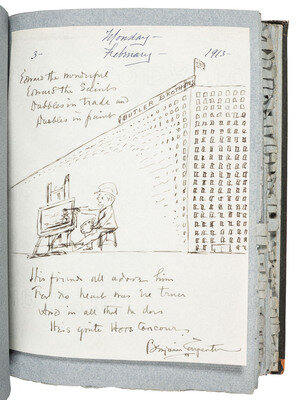 Monday -
3 - February - 1913 -
Edward the wonderful
Edward the Saints
Dabbles in trade and
Dabbles in paint
BUTLER BROTHERS
His friends all adore him
For no heart was ere truer
And in all that he does
He's quite Hors Concour
Benjamin Carpenter